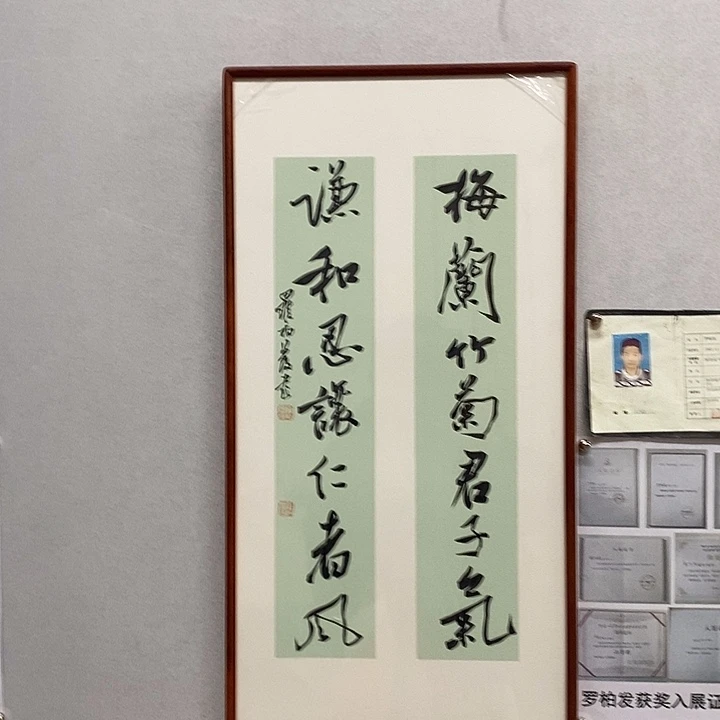 梅蘭竹菊君子氣
謙和忍讓仁者風
羅柏發書
罗柏发获奖入展证